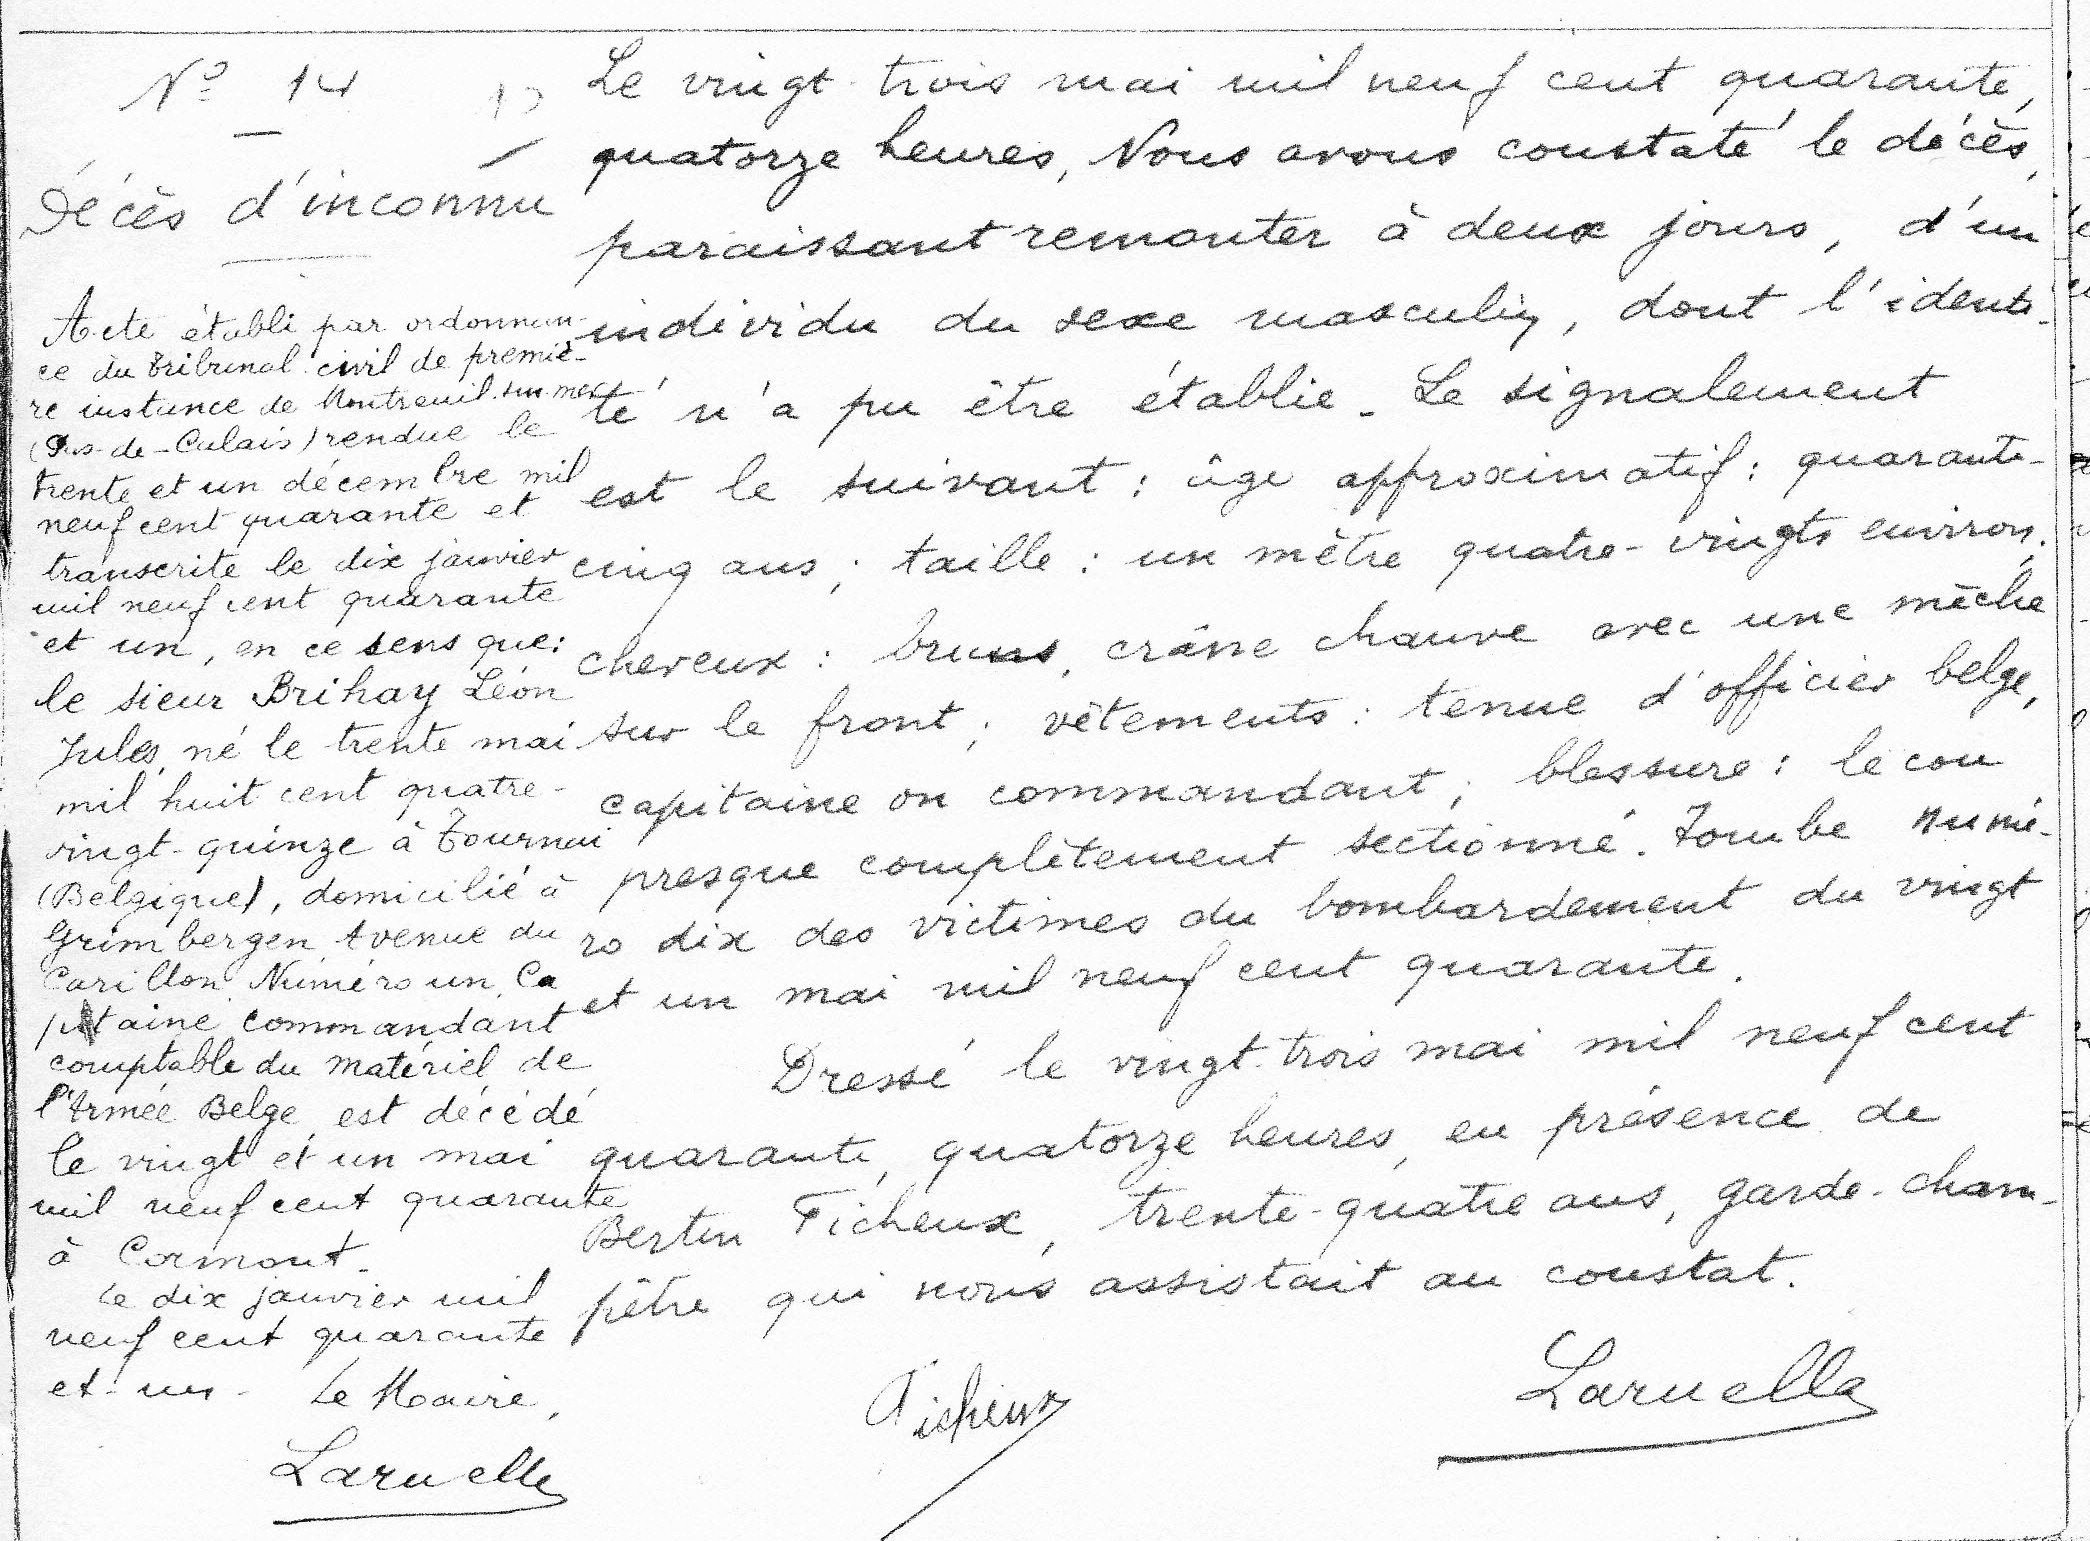 N° 14
Décès d'inconnu
Acte établi par ordonnan-
ce du Tribunal civil de premiè-
re instance de Montreuil-sur-mer
(Pas-de-Calais) rendue le
trente et un décembre mil
neuf cent quarante et
transcrite le dix janvier
mil neuf cent quarante
et un, en ce sens que:
le sieur Brihay Léon
Jules, né le trente mai
mil huit cent quatre-
vingt-quinze à Tournai
(Belgique), domicilié à
Grimbergen Avenue du
Carillon Numéro un, Ca
pitaine commandant
comptable du matériel de
l'Armée Belge est décédé
le vingt et un mai
mil neuf cent quarante
à Cormont.
Le dix janvier mil
neuf cent quarante
et un - Le Maire,
Laruelle
Le vingt-trois mai mil neuf cent quarante,
quatorze heures, Nous avons constaté le décès,
paraissant remonter à deux jours, d'un
individu du sexe masculin, dont l'identi-
té n'a pu être établie. Le signalement
est le suivant : âge approximatif : quarante-
cinq ans ; taille : un mètre quatre-vingts environ ;
cheveux : bruns, crâne chauve avec une mèche
sur le front ; vêtements : tenue d'officier belge,
capitaine ou commandant ; blessure : le cou
presque complètement sectionné. Tombe numé-
ro dix des victimes du bombardement du vingt
et un mai mil neuf cent quarante.
Dressé le vingt-trois mai mil neuf cent
quarante, quatorze heures, en présence de
Bertin Ficheux, trente-quatre ans, garde-cham-
pêtre qui nous assistait au constat.
Ficheux
Laruelle